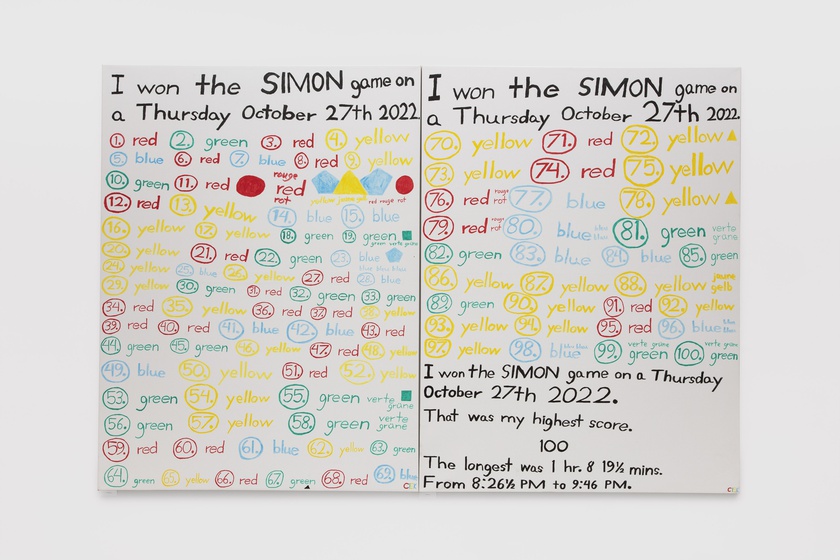 I won the SIMON game on
a Thursday October 27th 2022.
1. red 2. green 3. red 4. yellow
5. blue 6. red 7. blue 8. red 9. yellow
10. green 11. red rouge red rot
yellow jaune gelb red rouge rot
12. red 13. yellow 14. blue 15. blue
16. yellow 17. yellow 18. green 19. green
green verte grüne
20. yellow 21. red 22. green 23. blue
24. yellow 25. blue 26. yellow 27. red 28. blue
29. yellow 30. green 31. red 32. green 33. green
34. red 35. yellow 36. red 37. red 38. yellow
39. red 40. red 41. blue 42. blue 43. red
44. green 45. green 46. yellow 47. red 48. yellow
49. blue 50. yellow 51. red 52. yellow
53. green 54. yellow 55. green verte grüne
56. green 57. yellow 58. green verte grüne
59. red 60. red 61. blue 62. yellow 63. green
64. green 65. yellow 66. red 67. green 68. red 69. blue
I won the SIMON game on
a Thursday October 27th 2022.
70. yellow 71. red 72. yellow
73. yellow 74. red 75. yellow
76. red rouge rot 77. blue 78. yellow
79. red rouge rot 80. blue 81. green verte grüne
82. green 83. blue 84. blue 85. green
86. yellow 87. yellow 88. yellow jaune gelb
89. green 90. yellow 91. red 92. yellow
93. yellow 94. yellow 95. red 96. blue
97. yellow 98. blue 99. green verte grüne 100. green verte grüne
I won the SIMON game on a Thursday
October 27th 2022.
That was my highest score.
100
The longest was 1 hr. & 19½ mins.
From 8:26½ PM to 9:46 PM.